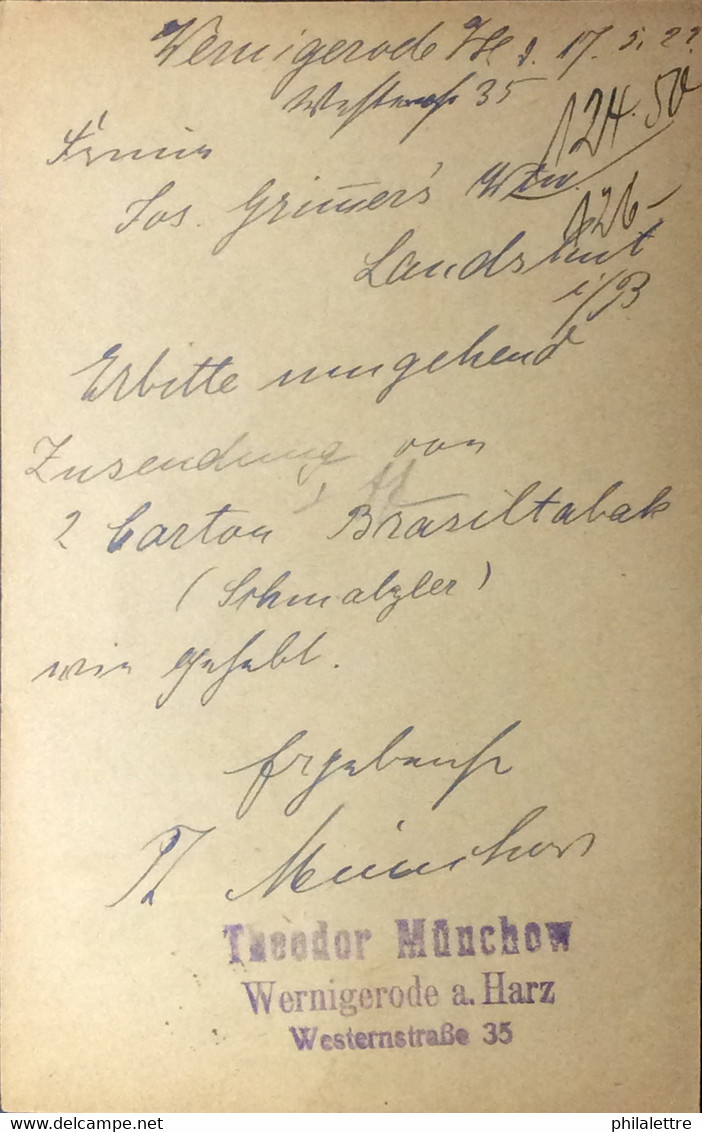 Wernigerode a/H d. 17.5.22
Westernstr 35
124.50
Firma
Jos. Grimmer's Wtw.
126–
Landshut
i/B
Erbitte umgehend
Zusendung von
2 Carton Brasiltabak
(Schmalzler)
wie gehabt.
Ergebenst
Th Münchow
Theodor Münchow
Wernigerode a. Harz
Westernstraße 35
www.delcampe.net
philalettre